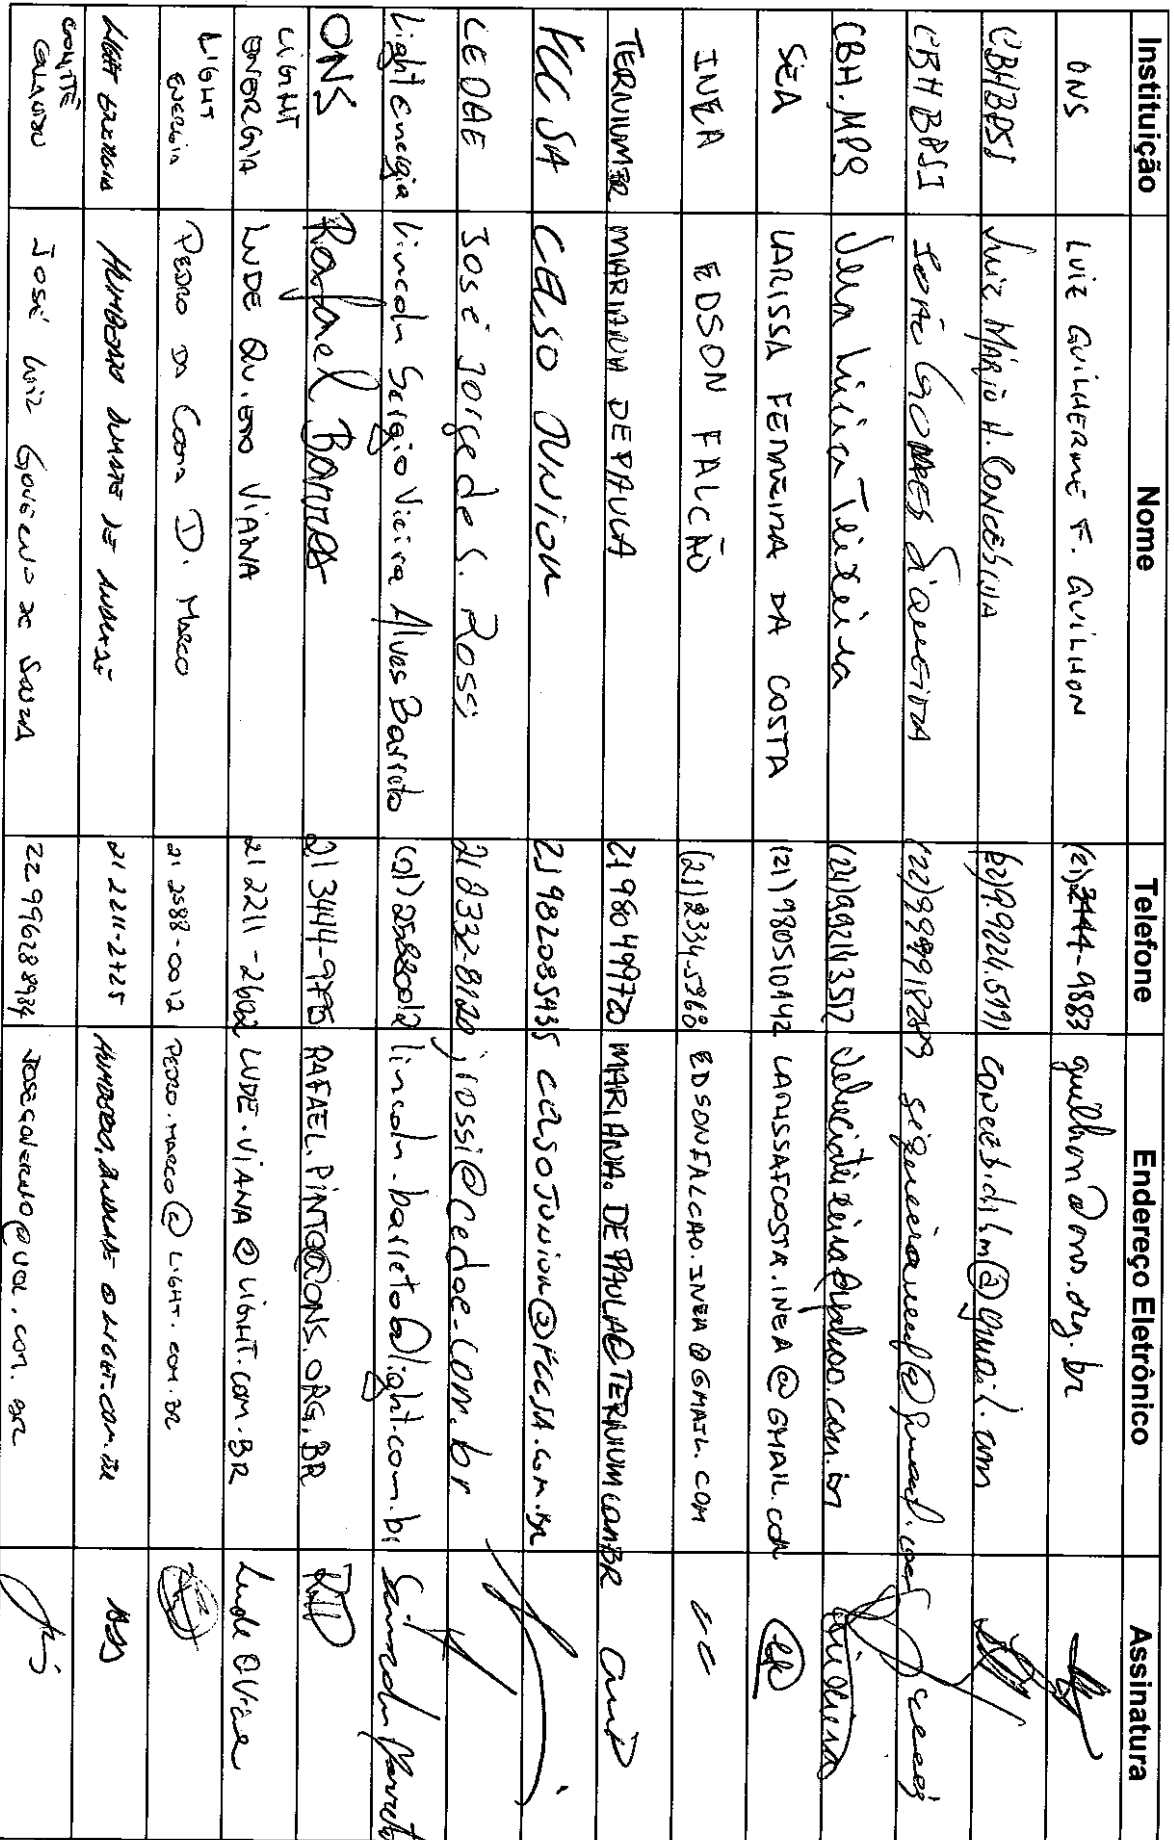 Instituição Nome Telefone Endereço Eletrônico Assinatura
ONS LUIZ GUILHERME F. GUILHON (21) 3444-9883 guilhon@ons.org.br
CBHBPSI Luiz Mário A. CONCEBIDA (22) 9.9224.5191 concebidilm@gmail.com
CBHBPSI João GOMES SIQUEIRA
CBH.MPS Vera Lúcia Teixeira (21) 992413517
SEA LARISSA FERREIRA DA COSTA (21) 980510442 LARISSAFCOSTA.INEA@GMAIL.COM
INEA EDSON FALCÃO (21) 2334-5368 EDSONFALCAO.INEA@GMAIL.COM
TERNIUM BR MARIANA DE PAULA 21 980499720 MARIANA.DEPAULA@TERNIUM.COM.BR
FCCSA CELSO JUNIOR 21 982085435 CELSOJUNIOR@FCCSA.COM.BR
CEDAE José Jorge de S. Rossi jrossi@cedae.com.br
Light Energia Lincoln Sergio Vieira Alves Barreto (21) 25880012 lincoln.barreto@light.com.br
ONS Rafael Barros 21 3444-9775 RAFAEL.PINTO@ONS.ORG.BR
LIGHT
ENERGIA LUDE QUIETO VIANA 21 2211-2602 LUDE.VIANA@LIGHT.COM.BR Lude Q Viana
LIGHT
ENERGIA PEDRO DA COSTA D. MARCO 21 2588-0012 PEDRO.MARCO@LIGHT.COM.BR
LIGHT ENERGIA HUMBERTO DUARTE DE ANDRADE 21 2211-2725 HUMBERTO.ANDRADE@LIGHT.COM.BR
COMITÊ
José Luiz GOVERNO DE SOUZA 22 996288984